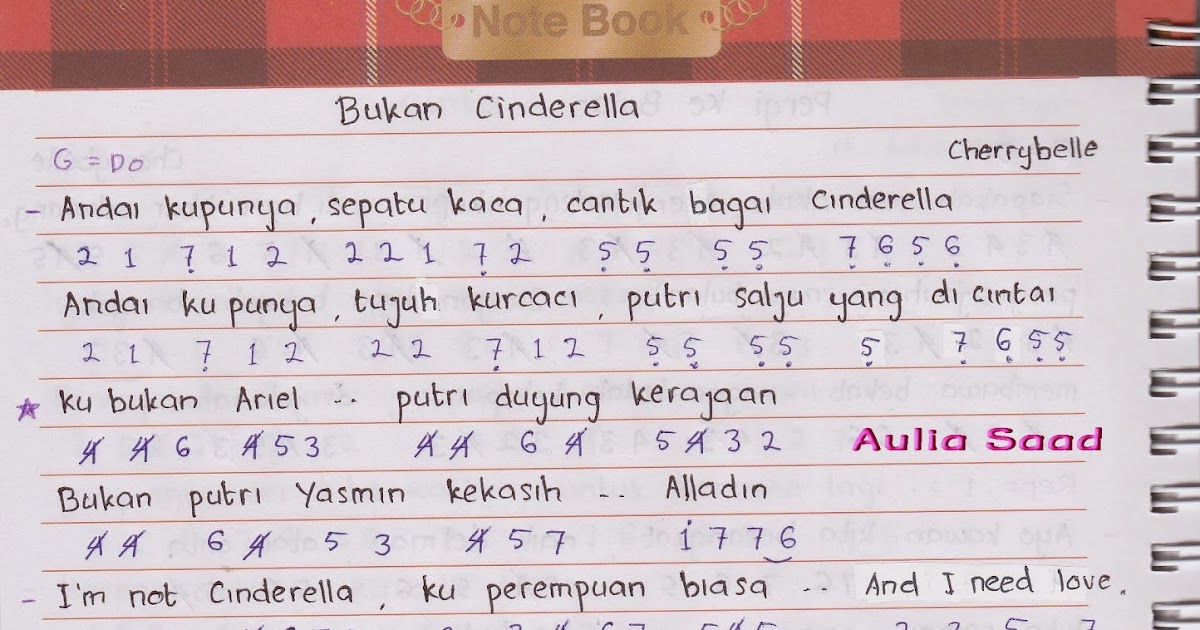 Note Book
Bukan Cinderella
G = Do
Cherrybelle
- Andai kupunya, sepatu kaca, cantik bagai Cinderella
2 1 7̣ 1 2 2 2 1 7̣ 2 5̣ 5̣ 5̣ 5̣ 7̣ 6̣ 5̣ 6̣
Andai ku punya, tujuh kurcaci, putri salju yang di cintai
2 1 7̣ 1 2 2 2 7̣ 1 2 5̣ 5̣ 5̣ 5̣ 5̣ 7̣ 6̣ 5̣ 5̣
☆ ku bukan Ariel .. putri duyung kerajaan
4̸ 4̸ 6 4̸ 5 3 4̸ 4̸ 6 4̸ 5 4̸ 3 2
Aulia Saad
Bukan putri Yasmin kekasih ... Alladin
4̸ 4̸ 6 4̸ 5 3 4̸ 5 7 1̇ 7 7 6
- I'm not Cinderella, ku perempuan biasa ... And I need love.